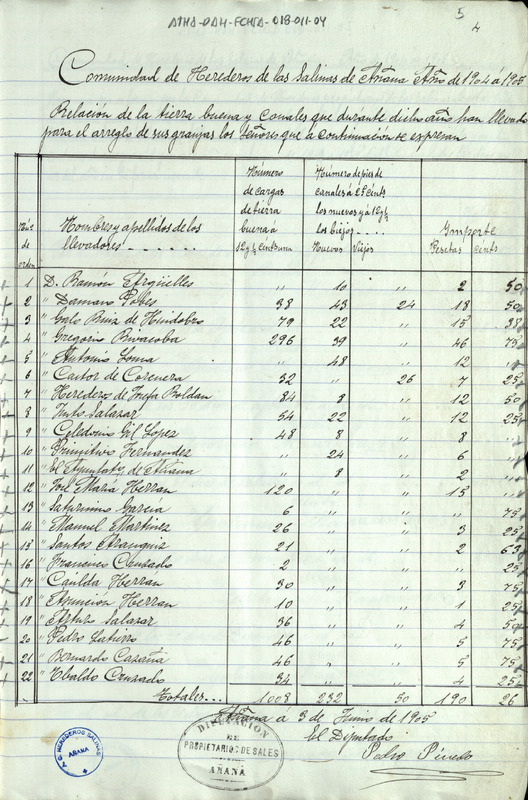 ATHA-DAH-FCHSA-018-011-04
5
4
Comunidad de Herederos de las Salinas de Añana Año de 1904 á 1905
Relación de la tierra buena y canales que durante dicho año han llevado
para el arreglo de sus granjas los Señores que a continuación se expresan
Núº de orden Nombres y apellidos de los llevadores Número de cargas de tierra buena a 12 y ½ cents una Número de pies de canales á 25 cents los nuevos y á 12 y ½ los biejos Nuevos Viejos Importe Pesetas cents
1 D. Ramón Argüelles " 10 " 2 50
2 " Damaso Pobes 38 43 24 18 50
3 " Ruiz de Huidobro 79 22 " 15 38
4 " Gregorio 296 39 " 46 75
5 " Antonio " 48 " 12 "
6 " Castor de Corcuera 32 " 26 7 25
7 " Herederos de Josefa Roldan 84 8 " 12 50
8 " Justo Salazar 54 22 " 12 25
9 " Celedonio Gil Lopez 48 8 " 8 "
10 " Primitivo Fernandez " 24 " 6 "
11 " El Ayuntatº de Añana " 8 " 2 "
12 " José María Herran 120 " " 15 "
13 " Saturnino García 6 " " " 75
14 " Manuel Martinez 26 " " 3 25
15 " Santos 21 " " 2 63
16 " Francisco Cruzado 2 " " " 25
17 " Herran 30 " " 3 75
18 " Asunción Herran 10 " " 1 25
19 " Arturo Salazar 36 " " 4 50
20 " Pedro 46 " " 5 75
21 " Bernardo 46 " " 5 75
22 " Ubaldo Cruzado 34 " " 4 25
Totales... 1008 232 50 190 26
Añana a 3 de Junio de 1905
El Diputado
Pedro Pinedo
DIPUTACION DE PROPIETARIOS DE SALES AÑANA
HEREDEROS SALINAS AÑANA